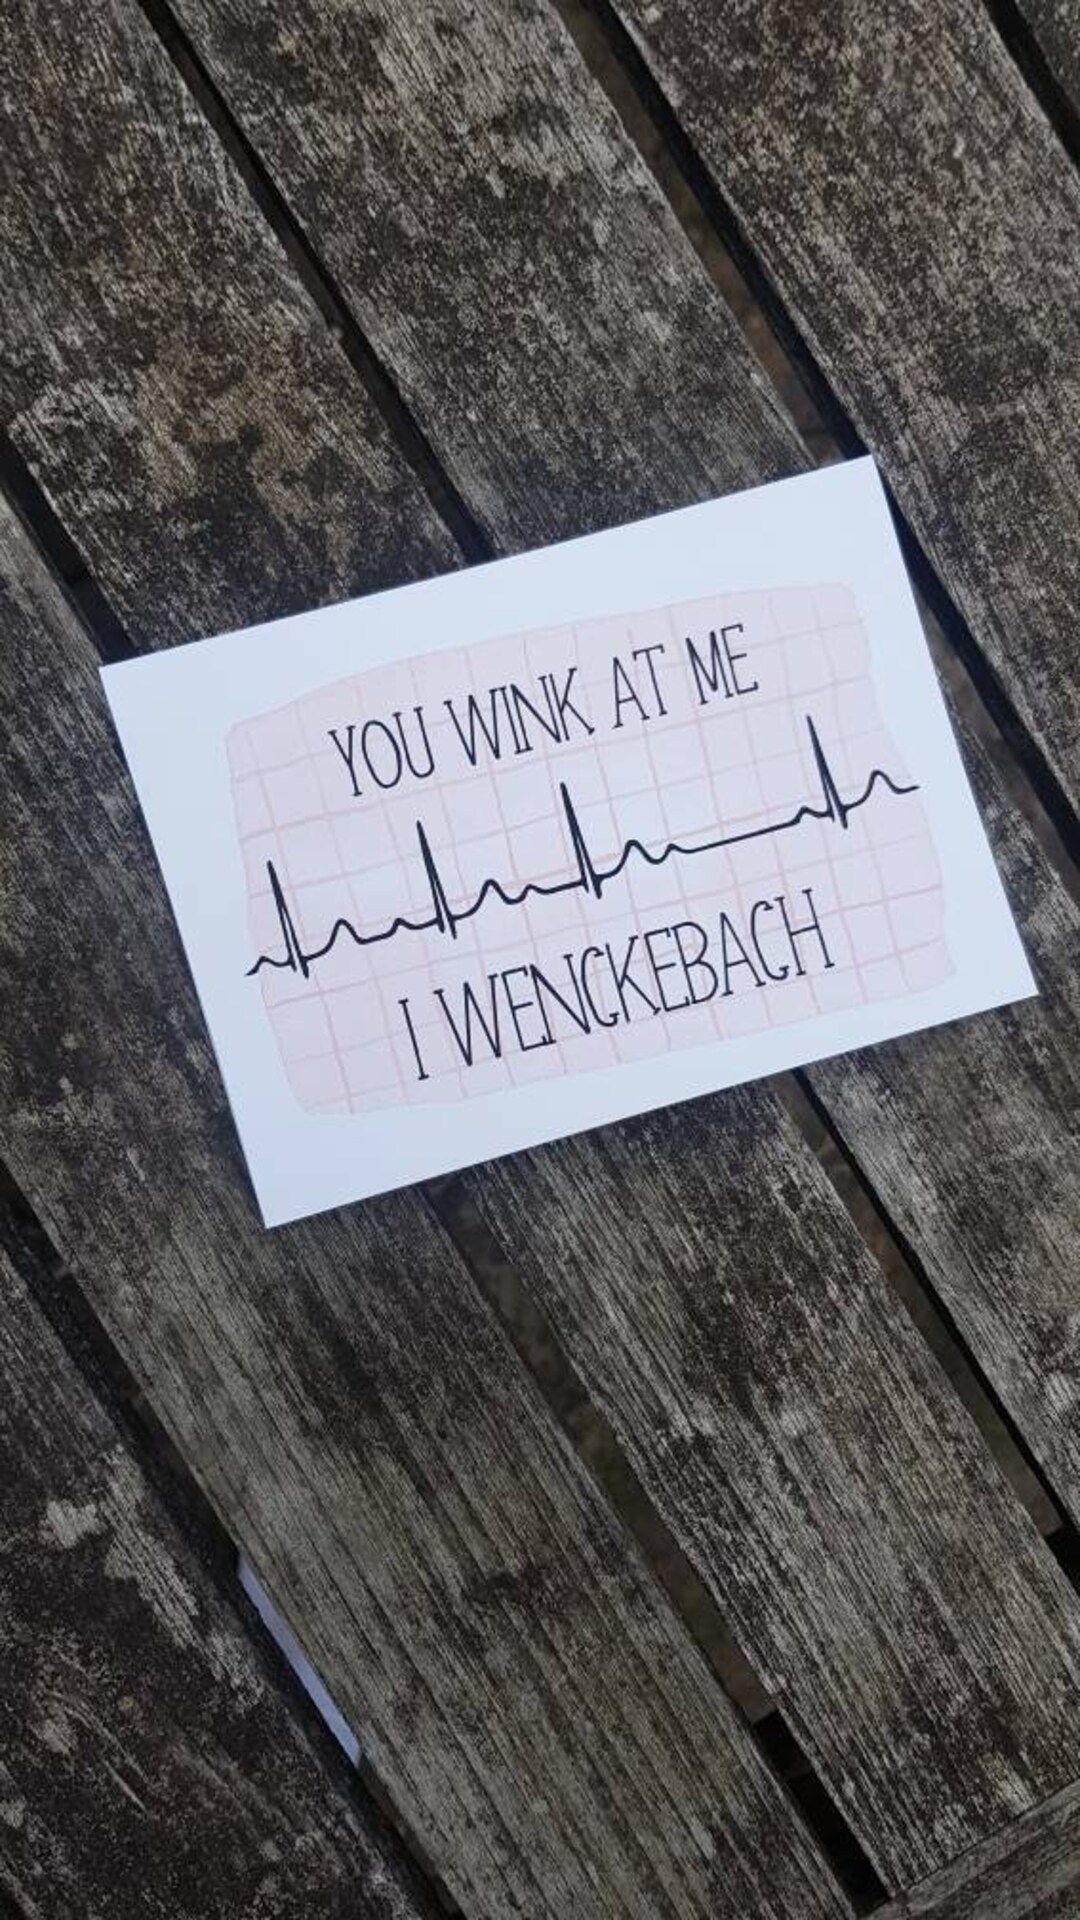 YOU WINK AT ME
I WENCKEBACH